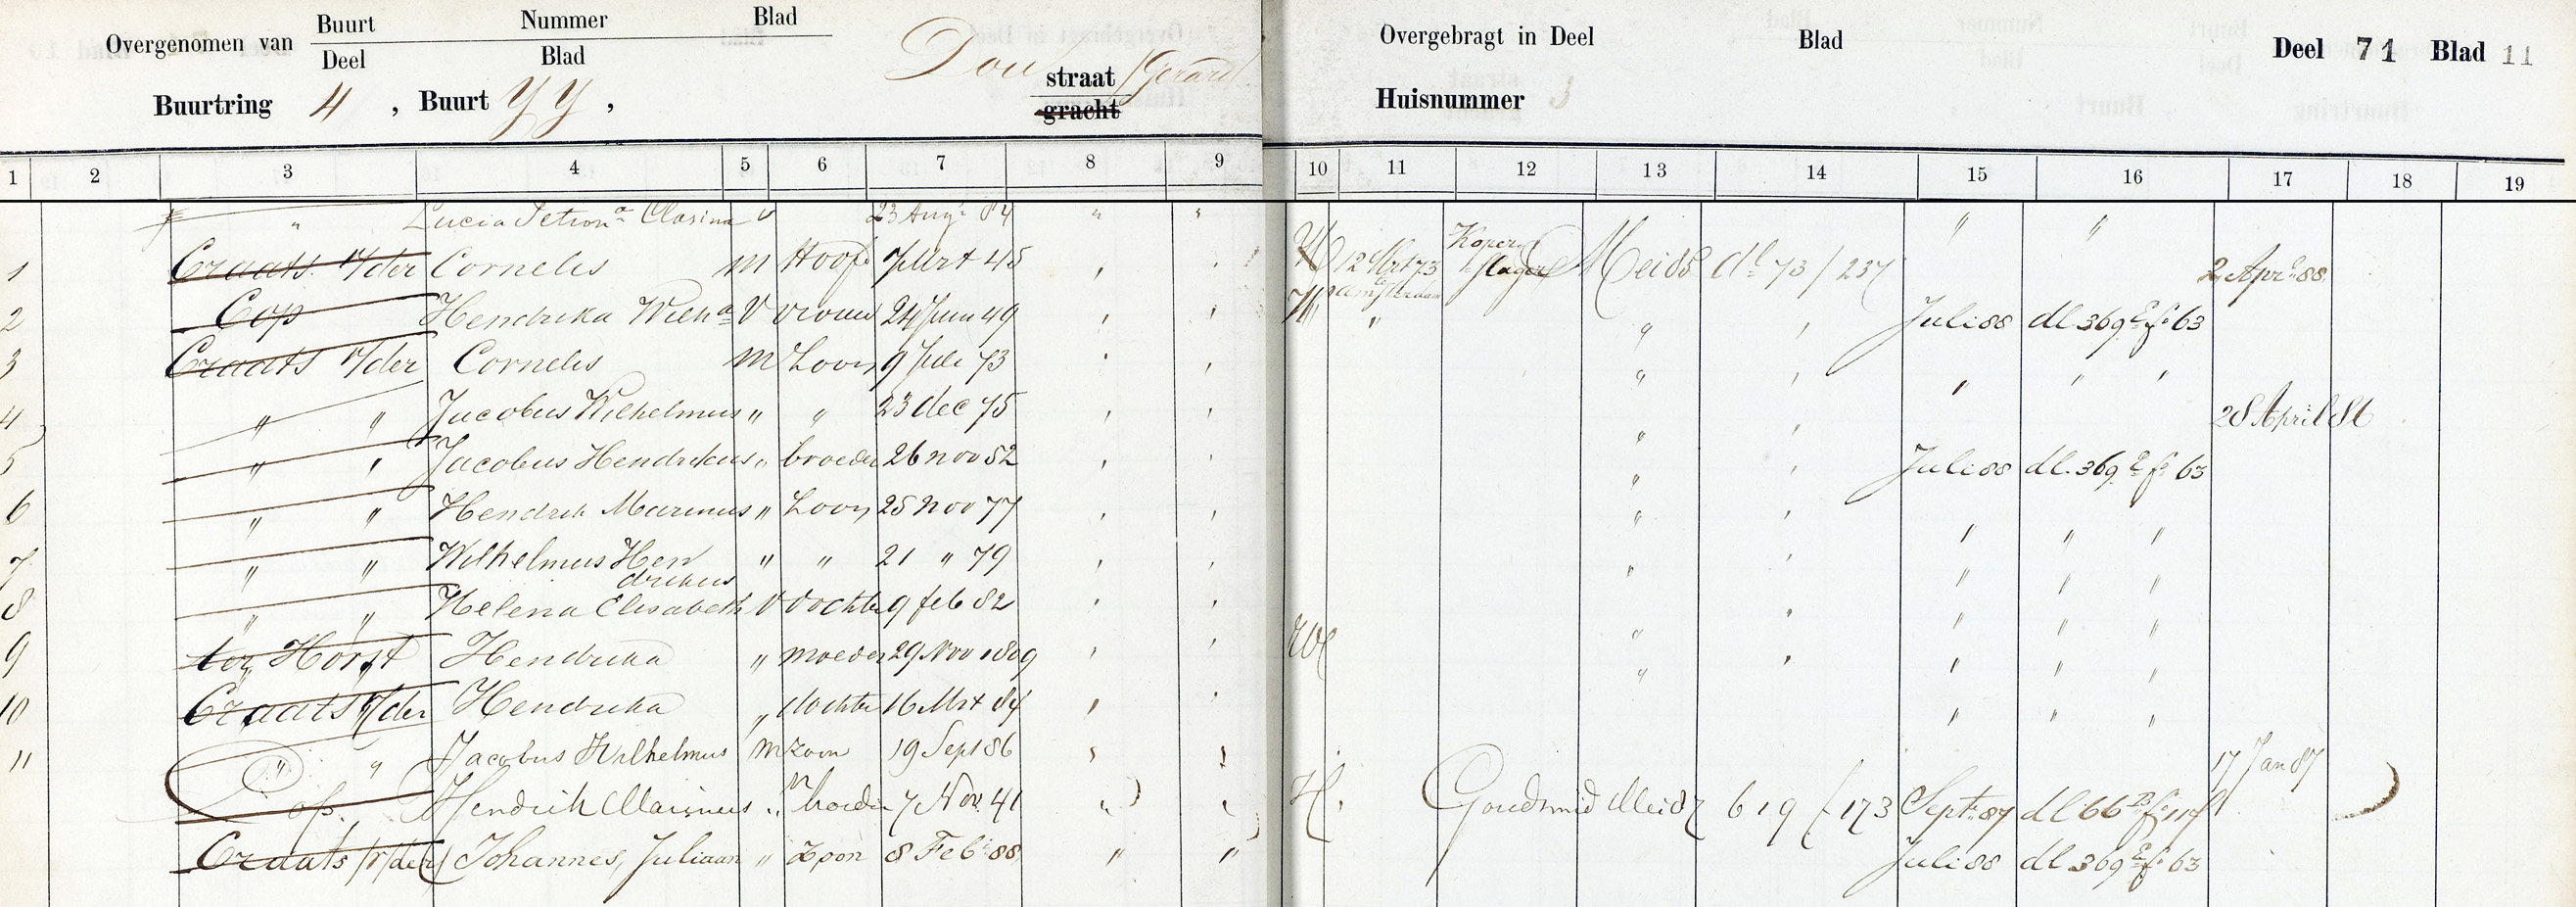 Buurt Nummer Blad
Overgenomen van Overgebragt in Deel Blad Deel 71 Blad 11
Deel Blad
Dou straat (Gerard
Buurtring 4, Buurt YY, gracht Huisnummer 3
1 2 3 4 5 6 7 8 9 10 11 12 13 14 15 16 17 18 19
" Lucia Petrona Clasina v 23 Aug 84 " " " "
1 Craats v/der Cornelis m Hoofd 7 Mrt 45 " " H 12 Mrt 73 Amsterdam Koperslager Mei 88 dl 73 / 237 2 Apr 88
2 Cop Hendrika Wilha V vrouw 24 Juni 49 " " " " " Juli 88 dl 369 E f 63
3 Craats v/der Cornelis m Zoon 9 Juli 73 " " " " " " "
4 " " Jacobus Wilhelmus " " 23 dec 75 " " " " 28 April 86
5 " " Jacobus Hendrikus " broeder 26 nov 52 " " " " Juli 88 dl. 369 E f 63
6 " " Hendrik Marinus " Zoon 25 nov 77 " " " " " " "
7 " " Wilhelmus Hendrikus " " 21 " 79 " " " " " " "
8 " " Helena Elisabeth V dochter 9 feb 82 " " " " " " "
9 ter Horst Hendrika " moeder 29 Nov 1809 " " W " " " " "
10 Craats v/der Hendrika " dochter 16 Mrt 84 " " " " "
11 " " Jacobus Wilhelmus m zoon 19 Sept 86 " " 17 Jan 87
Cop. Hendrik Marinus " broeder 7 Nov. 41 " " H. Goudsmid Mei 87 619 f 173 Sept 87 dl 66
Craats (v/der) Johannes, Juliaan " Zoon 8 Feb 88 " " Juli 88 dl 369 E f 63